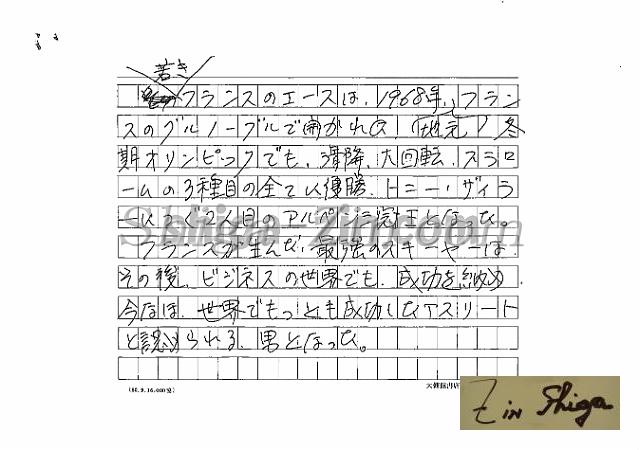 若き
フランスのエースは、1968年、フラン
スのグルノーブルで開かれた(地元)冬
期オリンピックでも、滑降、大回転、スラロ
ームの3種目の全てに優勝、トニー・ザイラ
ーにつぐ2人目のアルペン三冠王となった。
フランスが生んだ最強のスキーヤーは
その後、ビジネスの世界でも、成功を納め、
今では、世界でもっとも成功したアスリート
と認められる、男となった。
(80.9.16,000)
Shiga-Zin.com
Z in Shiga